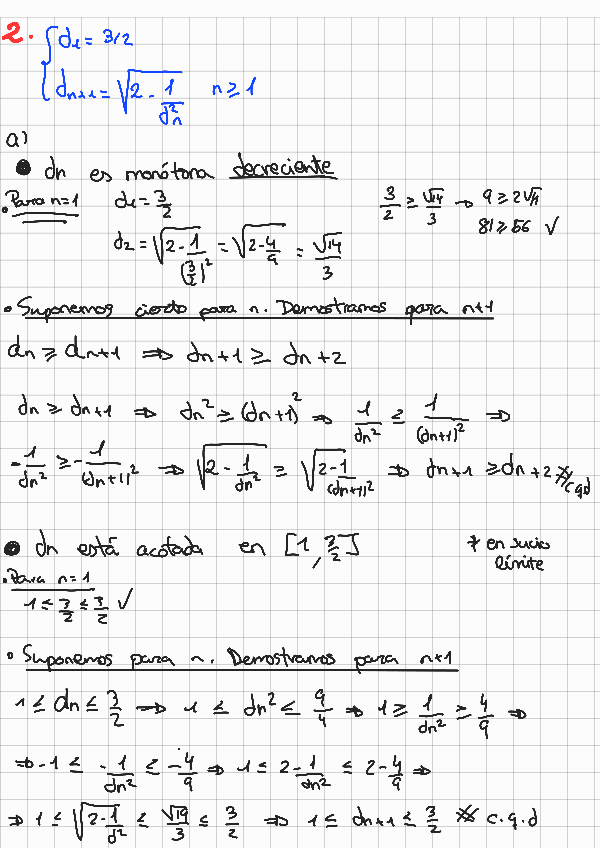 2. { d₁ = 3/2
d_{n+1} = √(2 - 1/d_n²)   n ≥ 1
a)
● dn es monótona decreciente
• Para n=1   d₁ = 3/2   3/2 ≥ √14/3 → 9 ≥ 2√14
81 ≥ 56 ✓
d₂ = √(2 - 1/(3/2)²) = √(2 - 4/9) = √14/3
• Suponemos cierto para n. Demostramos para n+1
dn ≥ dn+1 ⇒ dn+1 ≥ dn+2
dn ≥ dn+1 ⇒ dn² ≥ (dn+1)² ⇒ 1/dn² ≤ 1/(dn+1)² ⇒
-1/dn² ≥ -1/(dn+1)² ⇒ √(2 - 1/dn²) ≥ √(2 - 1/(dn+1)²) ⇒ dn+1 ≥ dn+2 // c.q.d
● dn está acotada en [1, 3/2]   * en sucio
límite
• Para n=1
1 ≤ 3/2 ≤ 3/2 ✓
• Suponemos para n. Demostramos para n+1
1 ≤ dn ≤ 3/2 → 1 ≤ dn² ≤ 9/4 ⇒ 1 ≥ 1/dn² ≥ 4/9 ⇒
⇒ -1 ≤ -1/dn² ≤ -4/9 ⇒ 1 ≤ 2 - 1/dn² ≤ 2 - 4/9 ⇒
⇒ 1 ≤ √(2 - 1/d²) ≤ √14/3 ≤ 3/2 ⇒ 1 ≤ dn+1 ≤ 3/2 // c.q.d